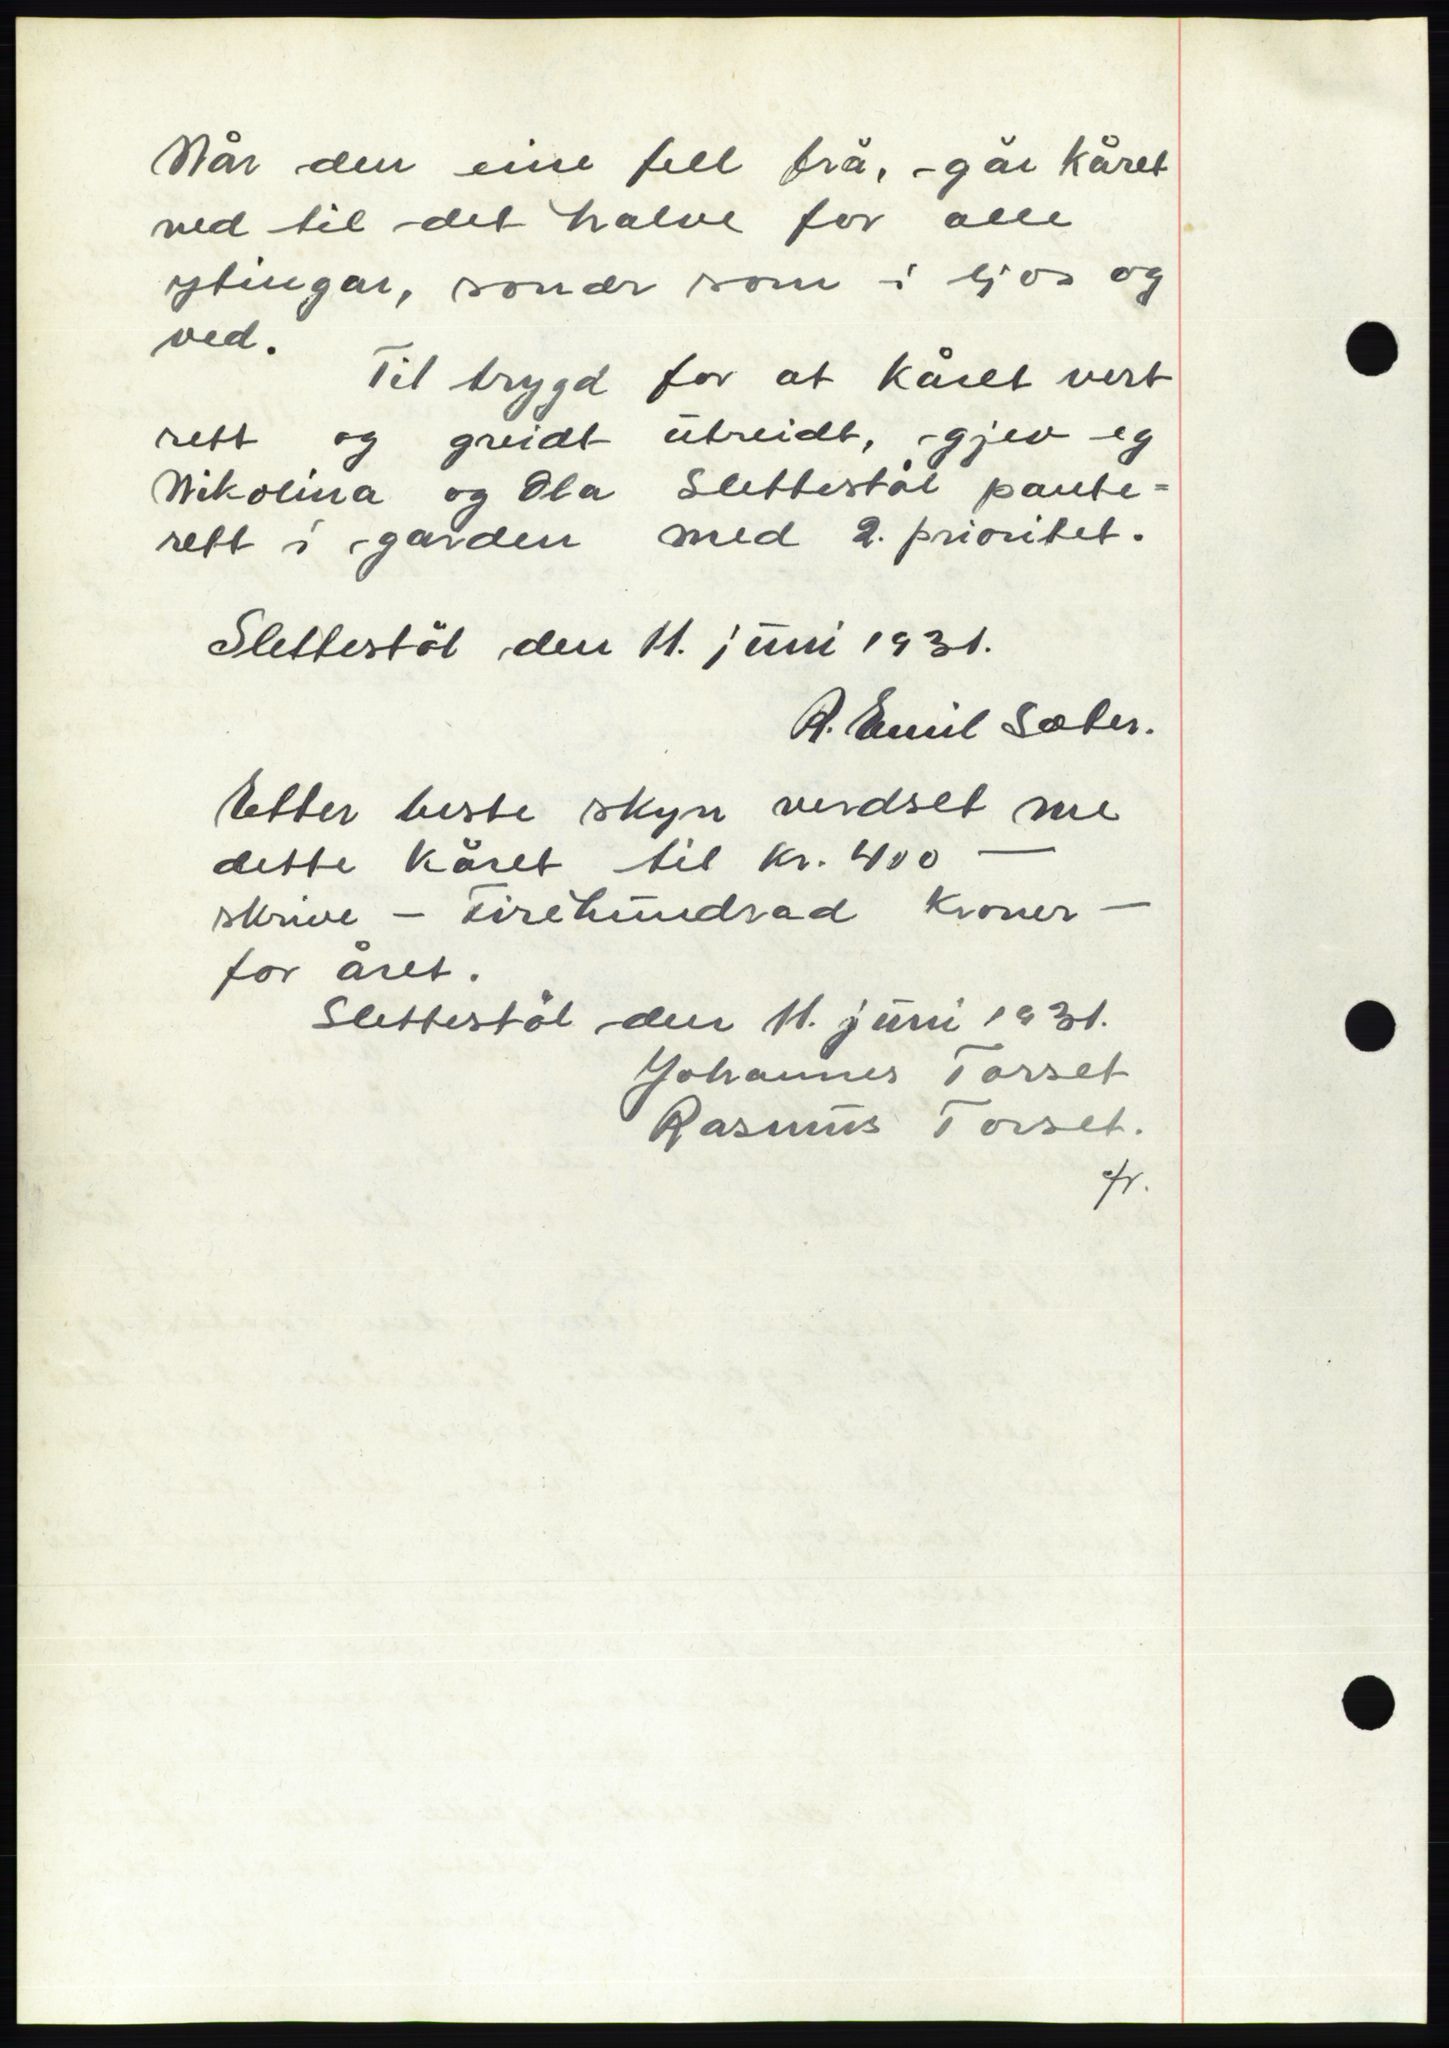 Når den eine fell frå, går kåret
ned til det halve for alle
ytingar, som i ljos og
ved.
Til trygd for at kåret vert
rett og greidt utreidt, gjev eg
Nikolina og Ola Slettestøl pante=
rett i garden med 2. prioritet.
Slettestøl den 11. juni 1931.
A. Emil Sæter.
Etter beste skyn verdset me
dette kåret til kr. 400 —
skrive — Firehundrad kroner —
for året.
Slettestøl den 11. juni 1931.
Johannes Torset
Rasmus Torset.